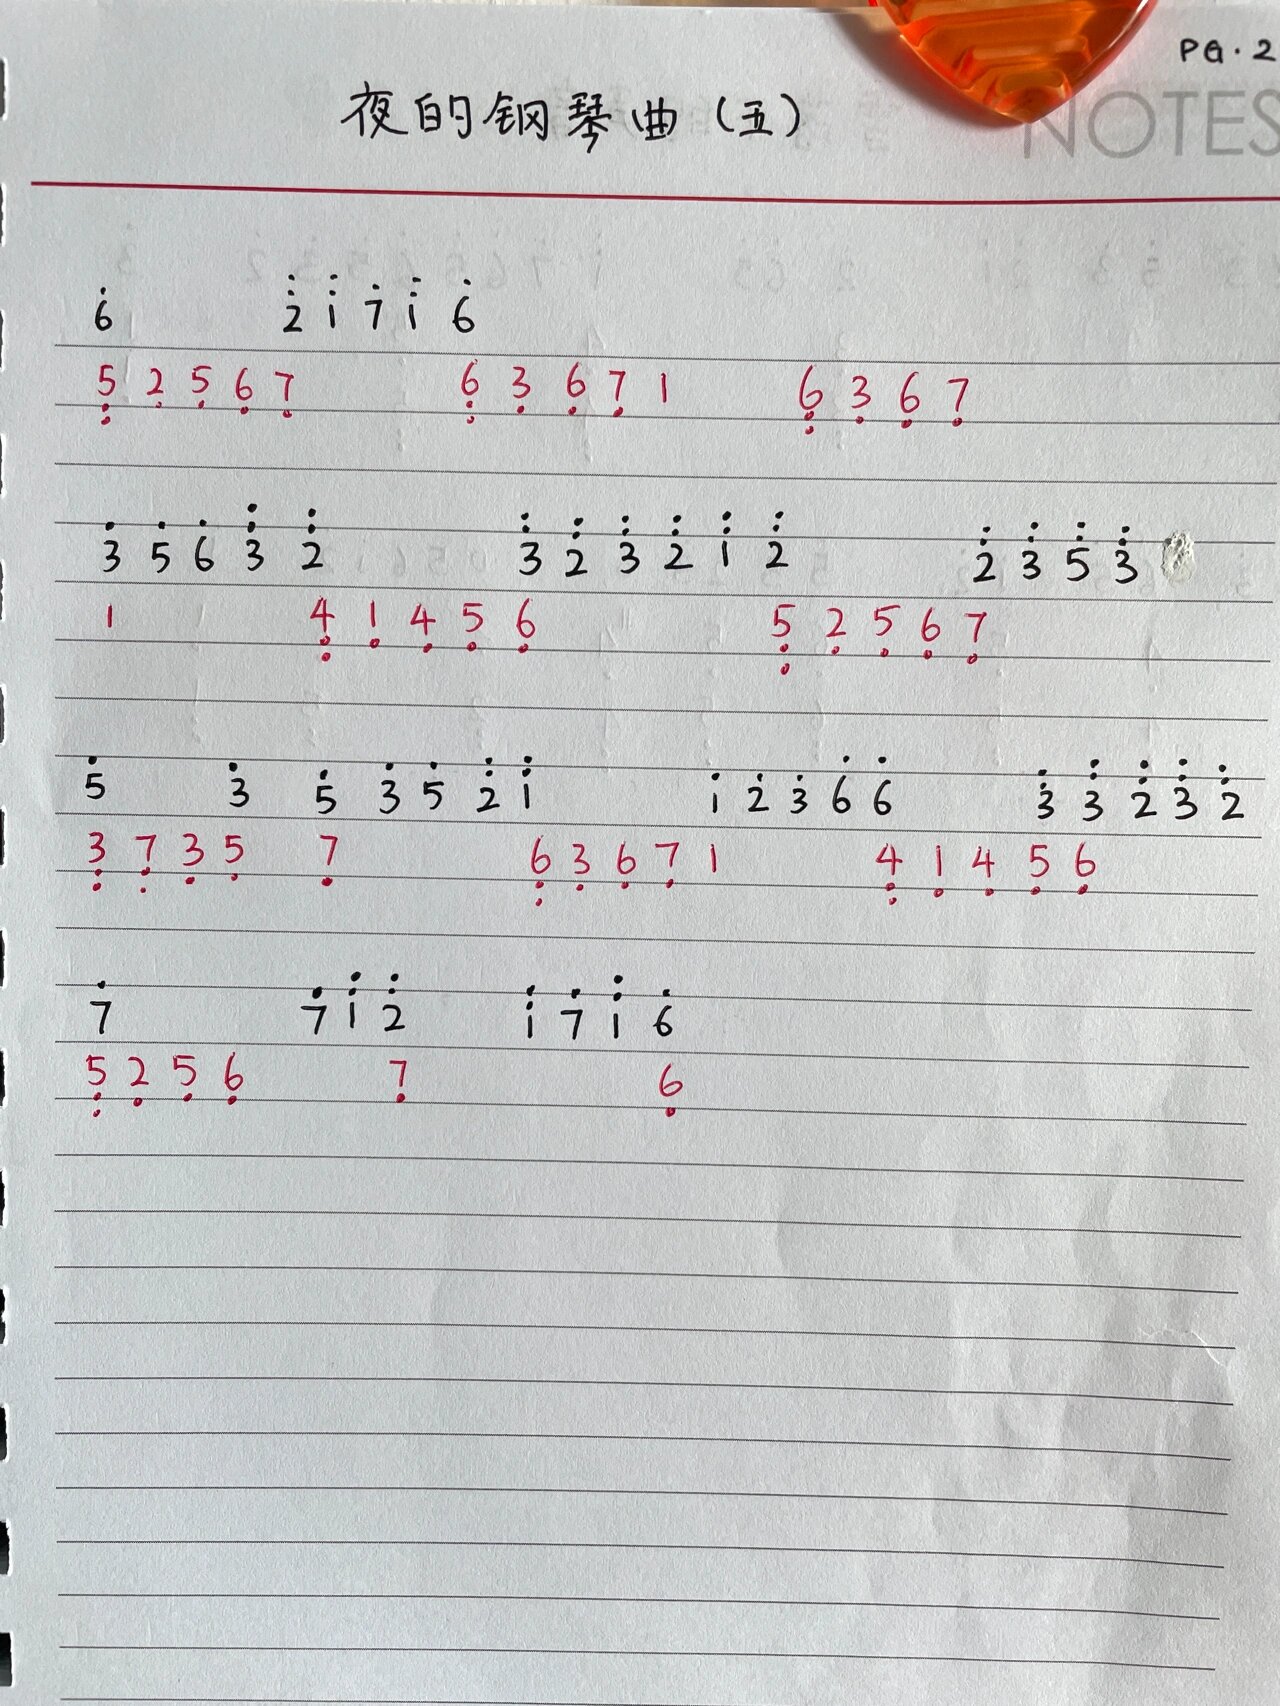 PG.2
NOTES
夜的钢琴曲(五)
6 2 1 7 1 6
5 2 5 6 7 6 3 6 7 1 6 3 6 7
3 5 6 3 2 3 2 3 2 1 2 2 3 5 3
1 4 1 4 5 6 5 2 5 6 7
5 3 5 3 5 2 1 1 2 3 6 6 3 3 2 3 2
3 7 3 5 7 6 3 6 7 1 4 1 4 5 6
7 7 1 2 1 7 1 6
5 2 5 6 7 6